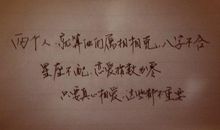 两个人，就算他们属相相克，八字不合
星座不配，恋爱指数为零
只要真心相爱，这些都不重要